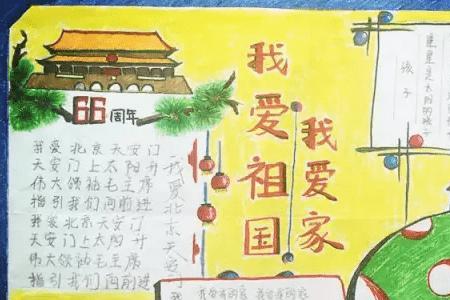 66周年
我爱北京天安门
天安门上太阳升
伟大领袖毛主席
指引我们向前进
我爱北京天安门
天安门上太阳升
伟大领袖毛主席
指引我们向前进
我爱北京天安门
我爱祖国
我爱家
孩子